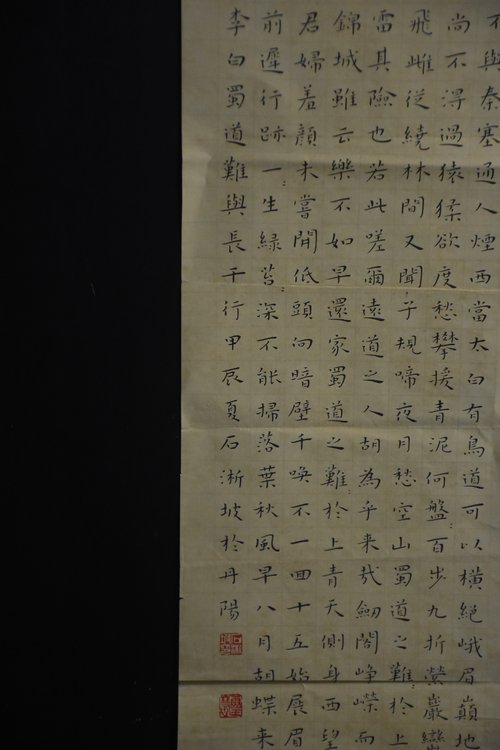 不與秦塞通人煙西當太白有鳥道可以橫絕峨眉巔地
尚不得過猿猱欲度愁攀援青泥何盤〻百步九折縈巖巒
飛雌從繞林間又聞子規啼夜月愁空山蜀道之難〻於上
雷其險也若此嗟爾遠道之人胡為乎来哉劍閣崢嶸而
錦城雖云樂不如早還家蜀道之難〻於上青天側身西望
君婦羞顏未嘗開低頭向暗壁千喚不一回十五始展眉
前遲行跡一〻生綠苔〻深不能掃落葉秋風早八月胡蝶来
李白蜀道難與長干行甲辰夏石淅坡於丹陽